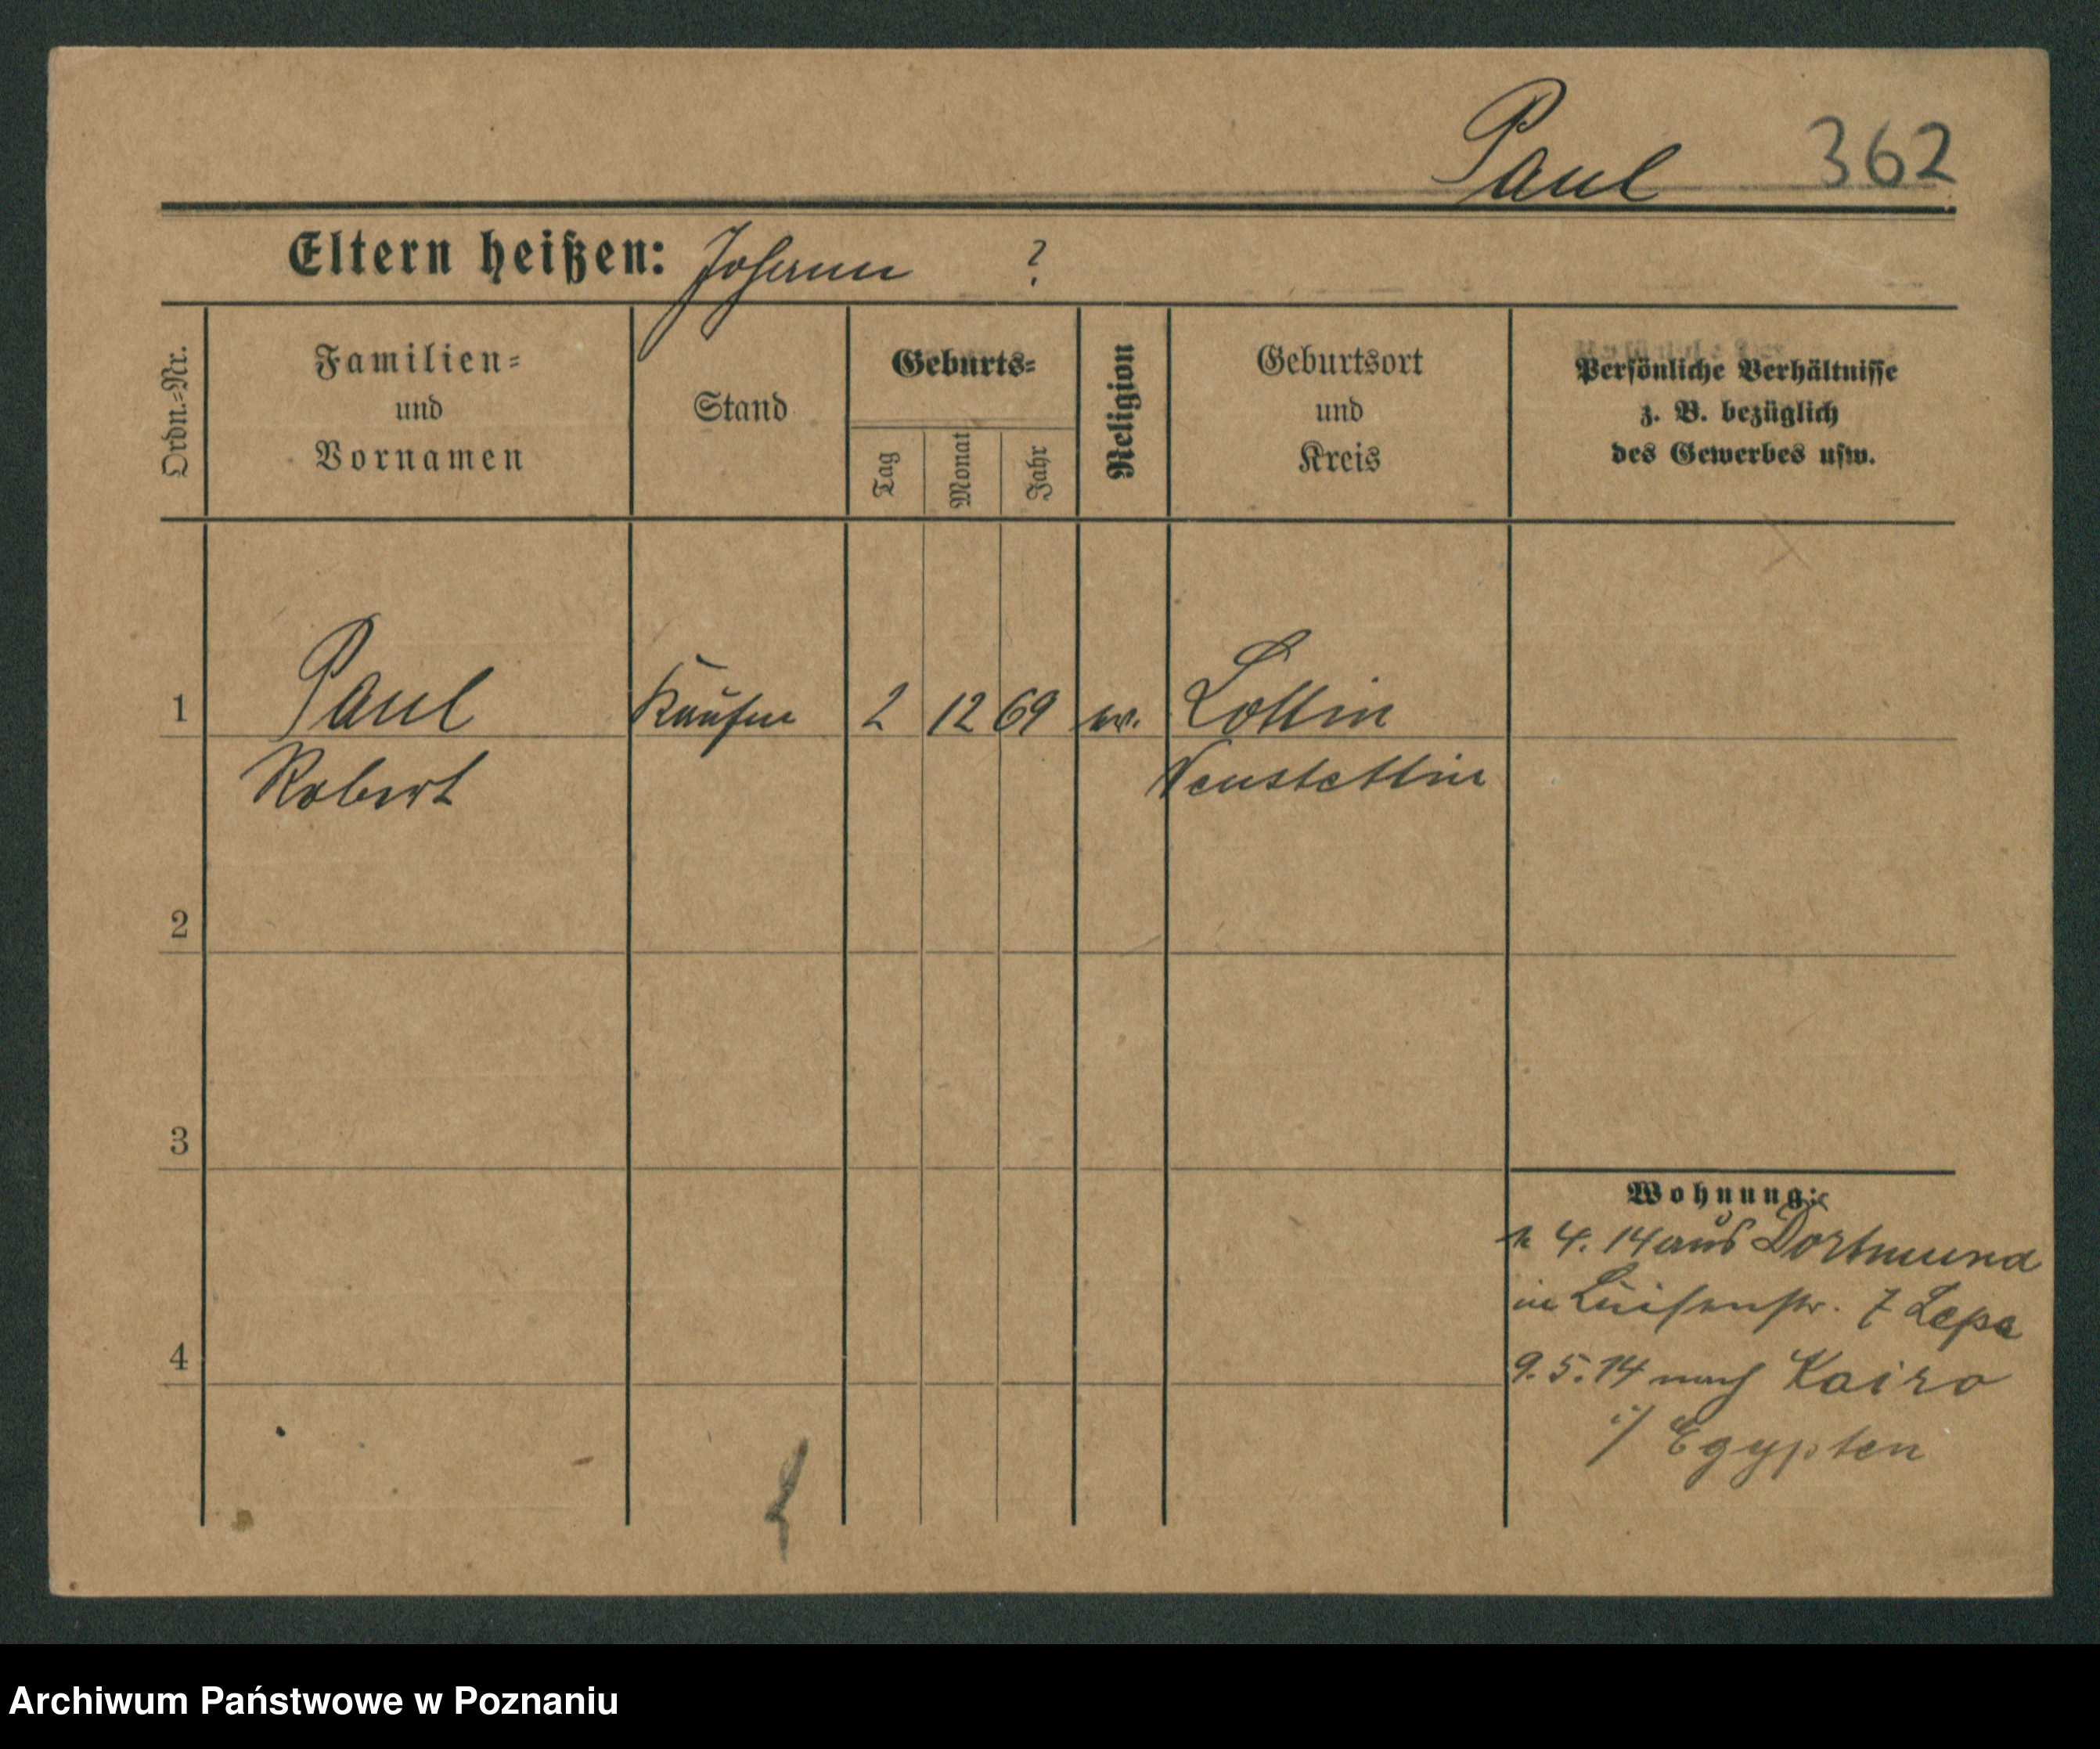 Paul 362
Eltern heißen: Johann ?
Ordn.=Nr.
Familien=
und
Vornamen
Stand
Geburts=
Tag
Monat
Jahr
Religion
Geburtsort
und
Kreis
Persönliche Verhältnisse
z. B. bezüglich
des Gewerbes usw.
1 Paul Kaufm 2 12 69 ev. Lottin
Robert Neustettin
2
3
4
Wohnung:
4. 14 aus Dortmund
in Luisenstr. 7
9. 5. 14 nach Kairo
i/ Egypten
Archiwum Państwowe w Poznaniu